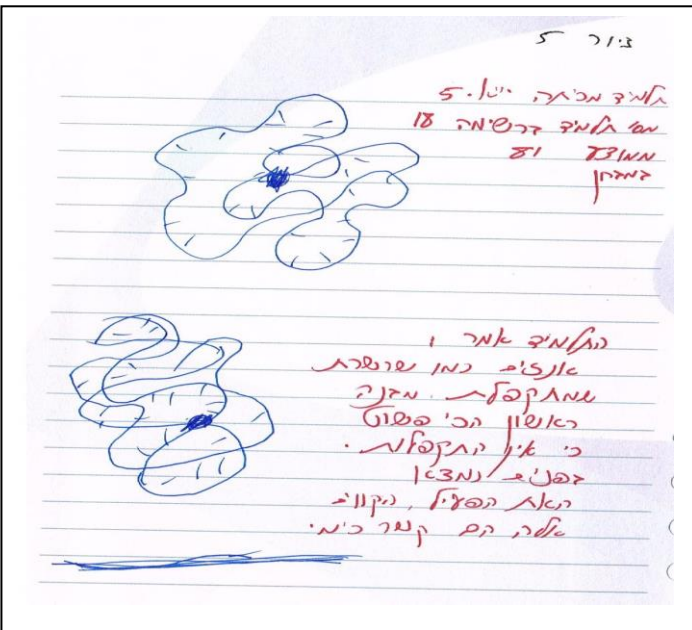 ציור 5
תלמיד מכיתה יי 5
מס' תלמיד ברשימה 18
ממוצע
במבחן
התלמיד אמר:
אנזים כמו שרשרת
שמתקפלת. מבנה
ראשון הכי פשוט
כי אין התקפלות.
בפנים נמצא
האתר הפעיל, הקווים
אלה הם קשר כימי.